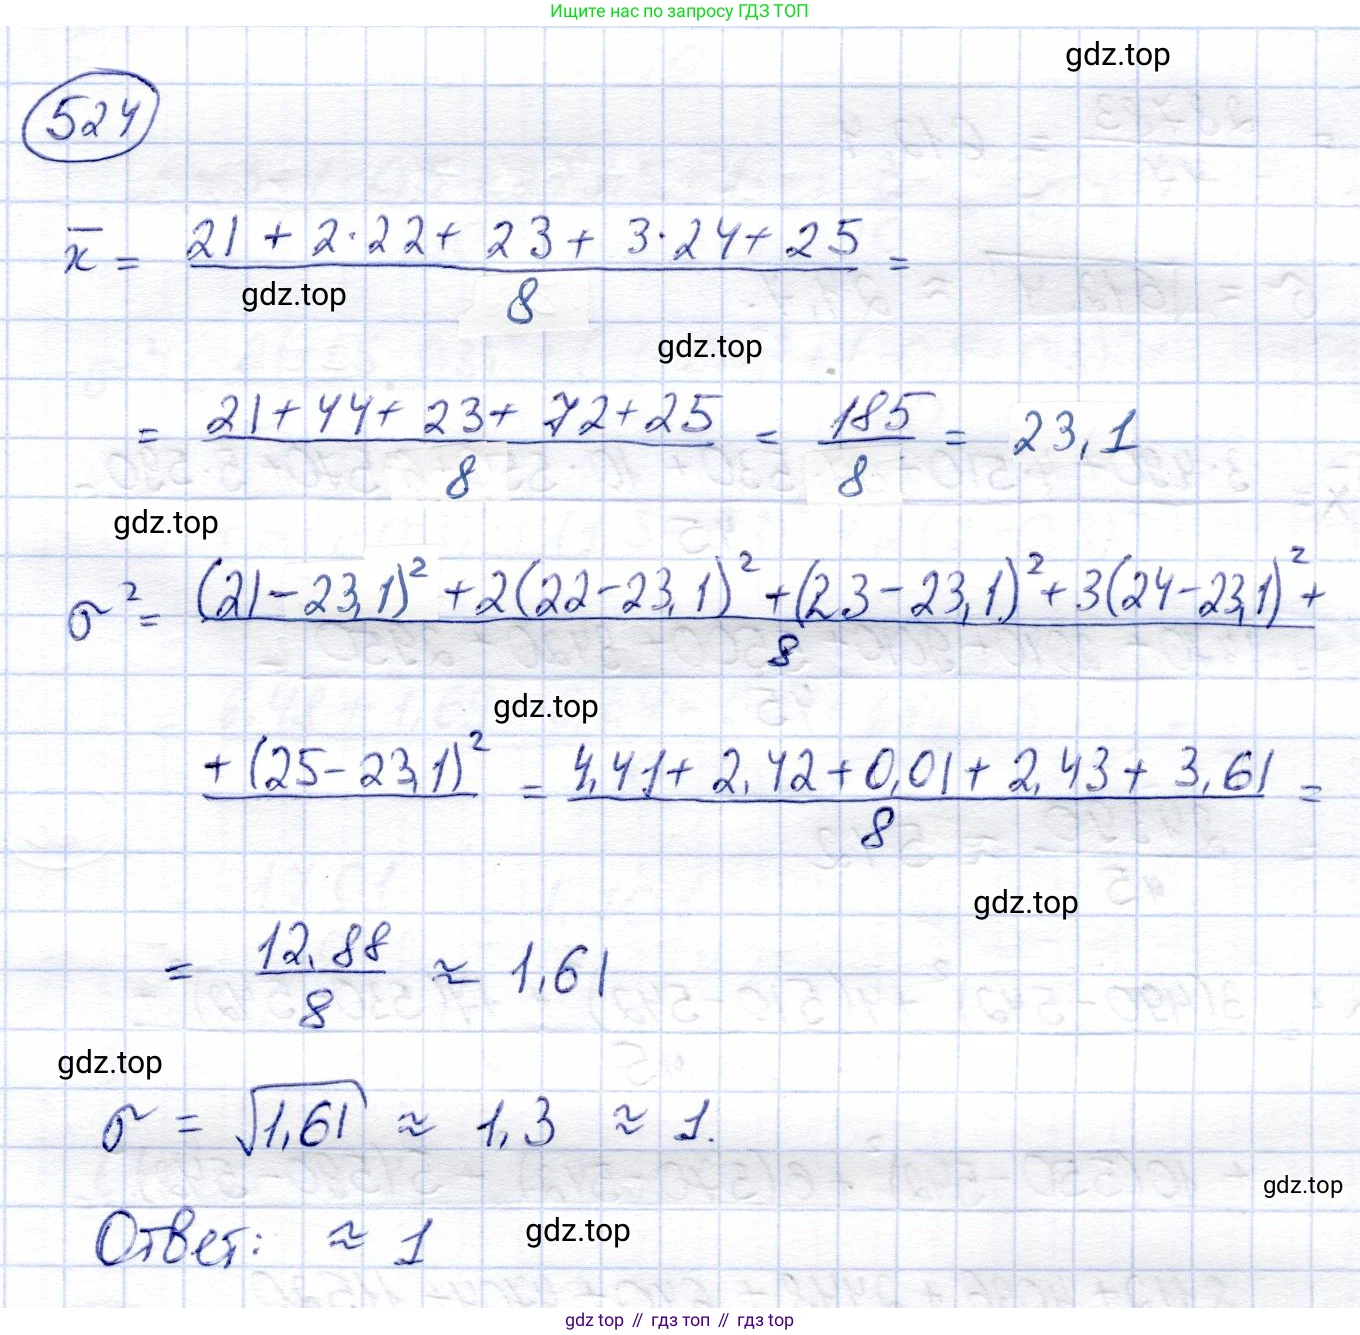 Ищите нас по запросу ГДЗ ТОП
gdz.top
524
x̄ = (21 + 2·22 + 23 + 3·24 + 25)/8 =
gdz.top
gdz.top
= (21 + 44 + 23 + 72 + 25)/8 = 185/8 = 23,1
gdz.top
σ² = (21 - 23,1)² + 2(22 - 23,1)² + (23 - 23,1)² + 3(24 - 23,1)² +
8
gdz.top
+ (25 - 23,1)² = (4,41 + 2,42 + 0,01 + 2,43 + 3,61)/8 =
gdz.top
= 12,88/8 ≈ 1,61
gdz.top
σ = √1,61 ≈ 1,3 ≈ 1.
gdz.top
Ответ: ≈ 1
gdz.top
gdz top // гдз топ // gdz top